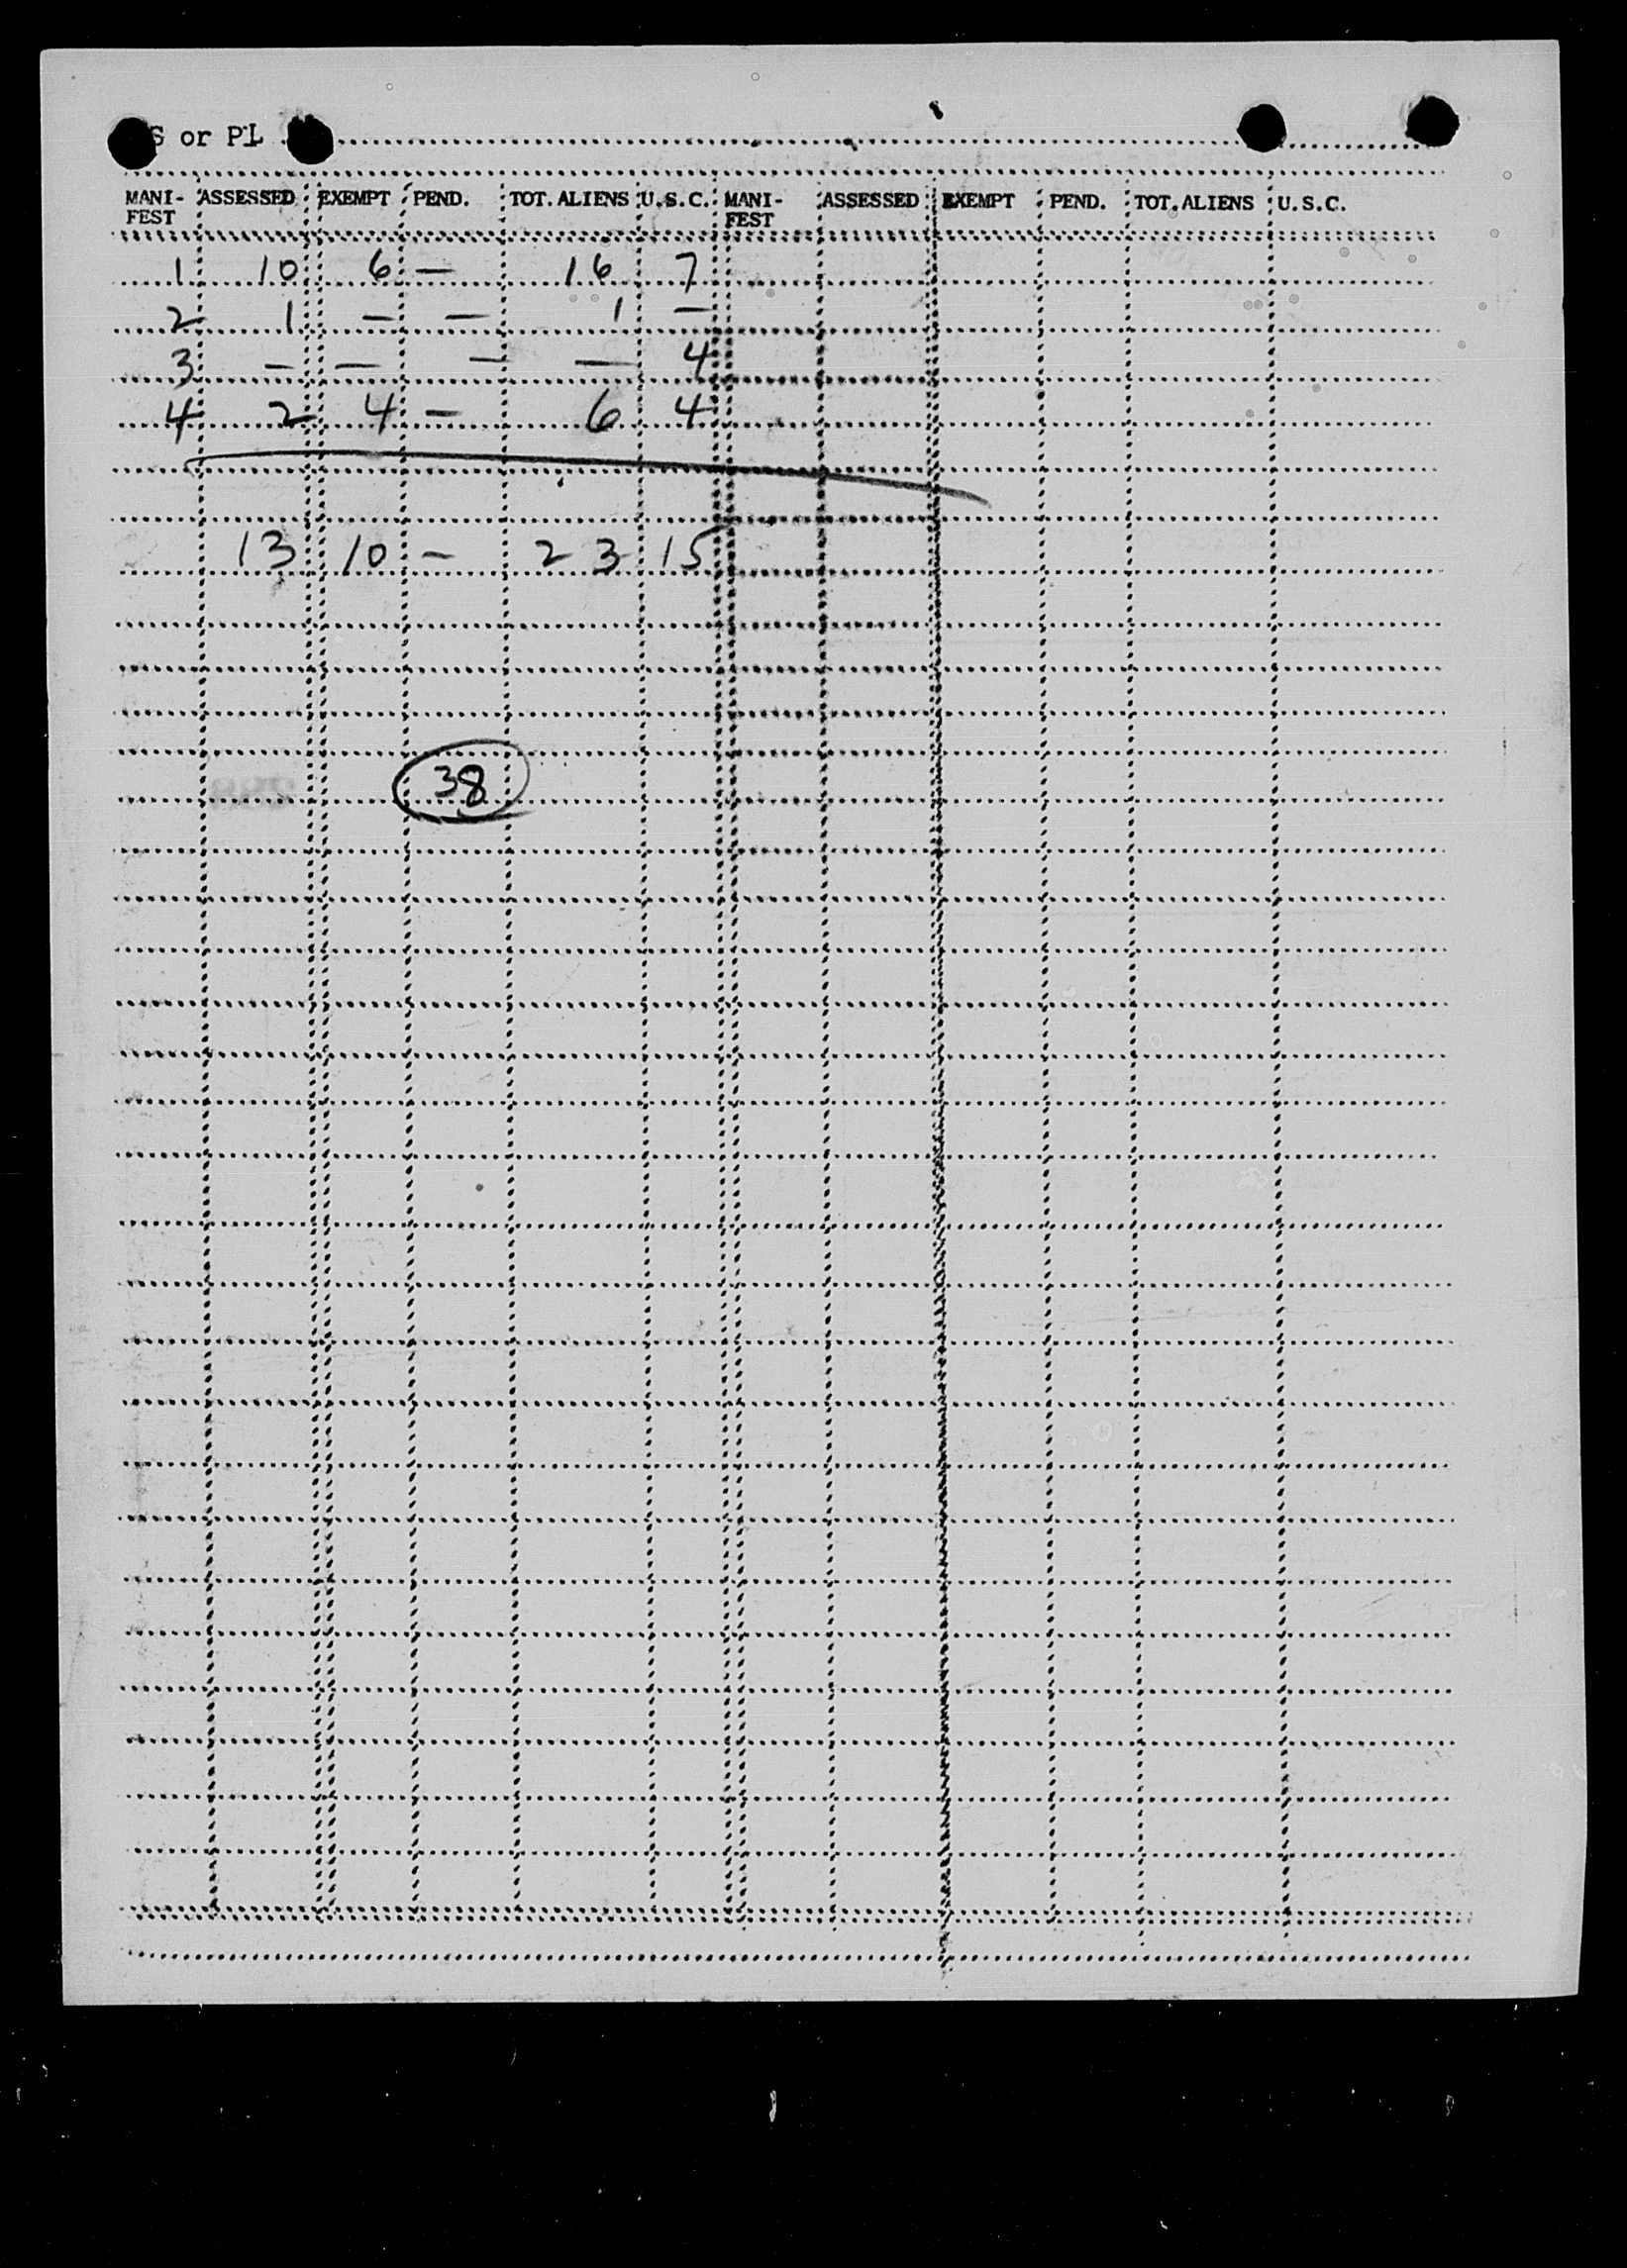 S or PL
MANI-FEST ASSESSED EXEMPT PEND. TOT. ALIENS U.S.C. MANI-FEST ASSESSED EXEMPT PEND. TOT. ALIENS U.S.C.
1 10 6 — 16 7
2 1 — — 1 —
3 — — — — 4
4 2 4 — 6 4
13 10 — 23 15
38